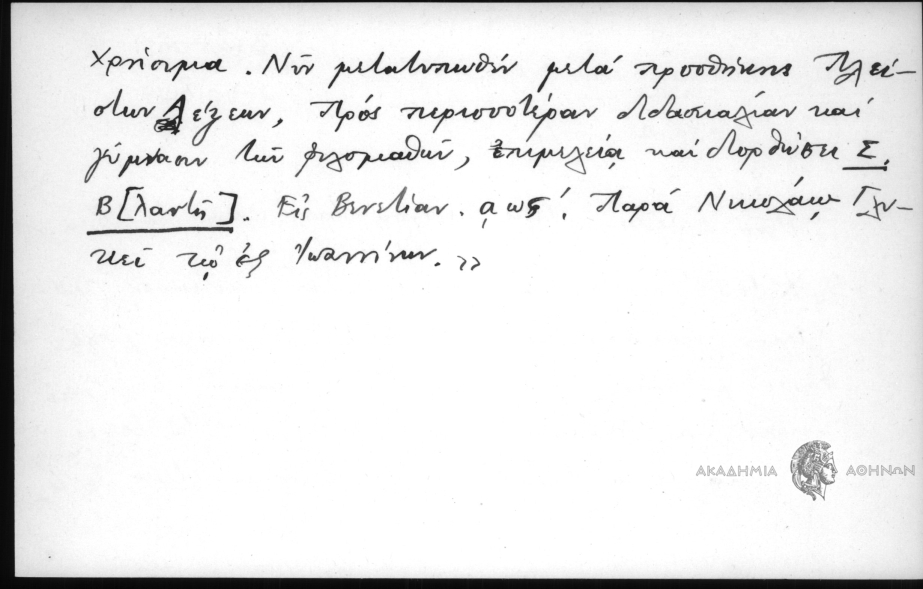 χρήσιμα. Νῦν μετατυπωθέν μετά προσθήκης Πλεί-
στων Λέξεων, Πρός περισσοτέραν διδασκαλίαν καί
γύμνασιν τῶν φιλομαθῶν, ἐπιμελείᾳ καί διορθώσει Σ.
Β[λαντῆ]. Εἰς Βενετίαν. αωϛ΄. Παρά Νικολάῳ Γλυ-
κεῖ τῷ ἐξ Ἰωαννίνων.»
ΑΚΑΔΗΜΙΑ ΑΘΗΝΩΝ